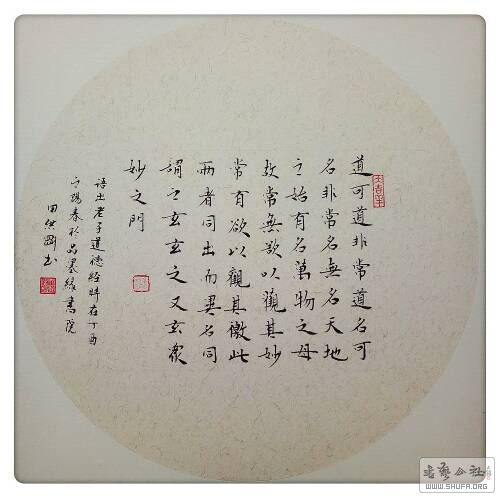 道可道非常道名可
名非常名無名天地
之始有名萬物之母
故常無欲以觀其妙
常有欲以觀其徼此
兩者同出而異名同
謂之玄玄之又玄衆
妙之門
语出老子道德經時在丁酉
之陽春於品墨緣書院
田洪剛书
書藝公社
WWW.SHUFA.ORG